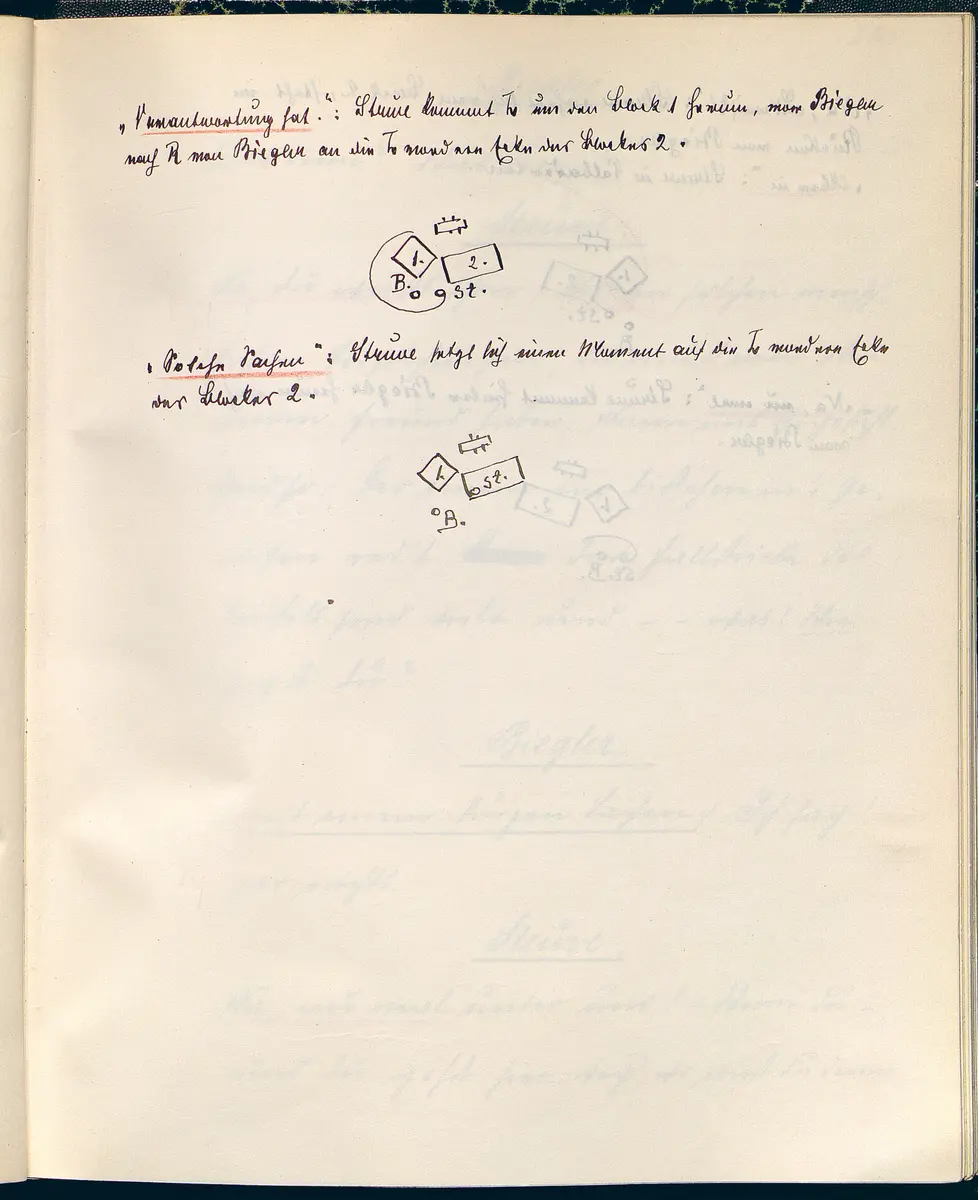 „Verantwortung hat.“: Struve kommt L um den Block 1 herum, vor Biegler
nach R von Biegler an die L vordere Ecke des Blockes 2.
1. 2.
B. St.
„Solche Sachen“: Struve setzt sich einen Moment auf die L vordere Ecke
des Blockes 2.
1. St.
B.